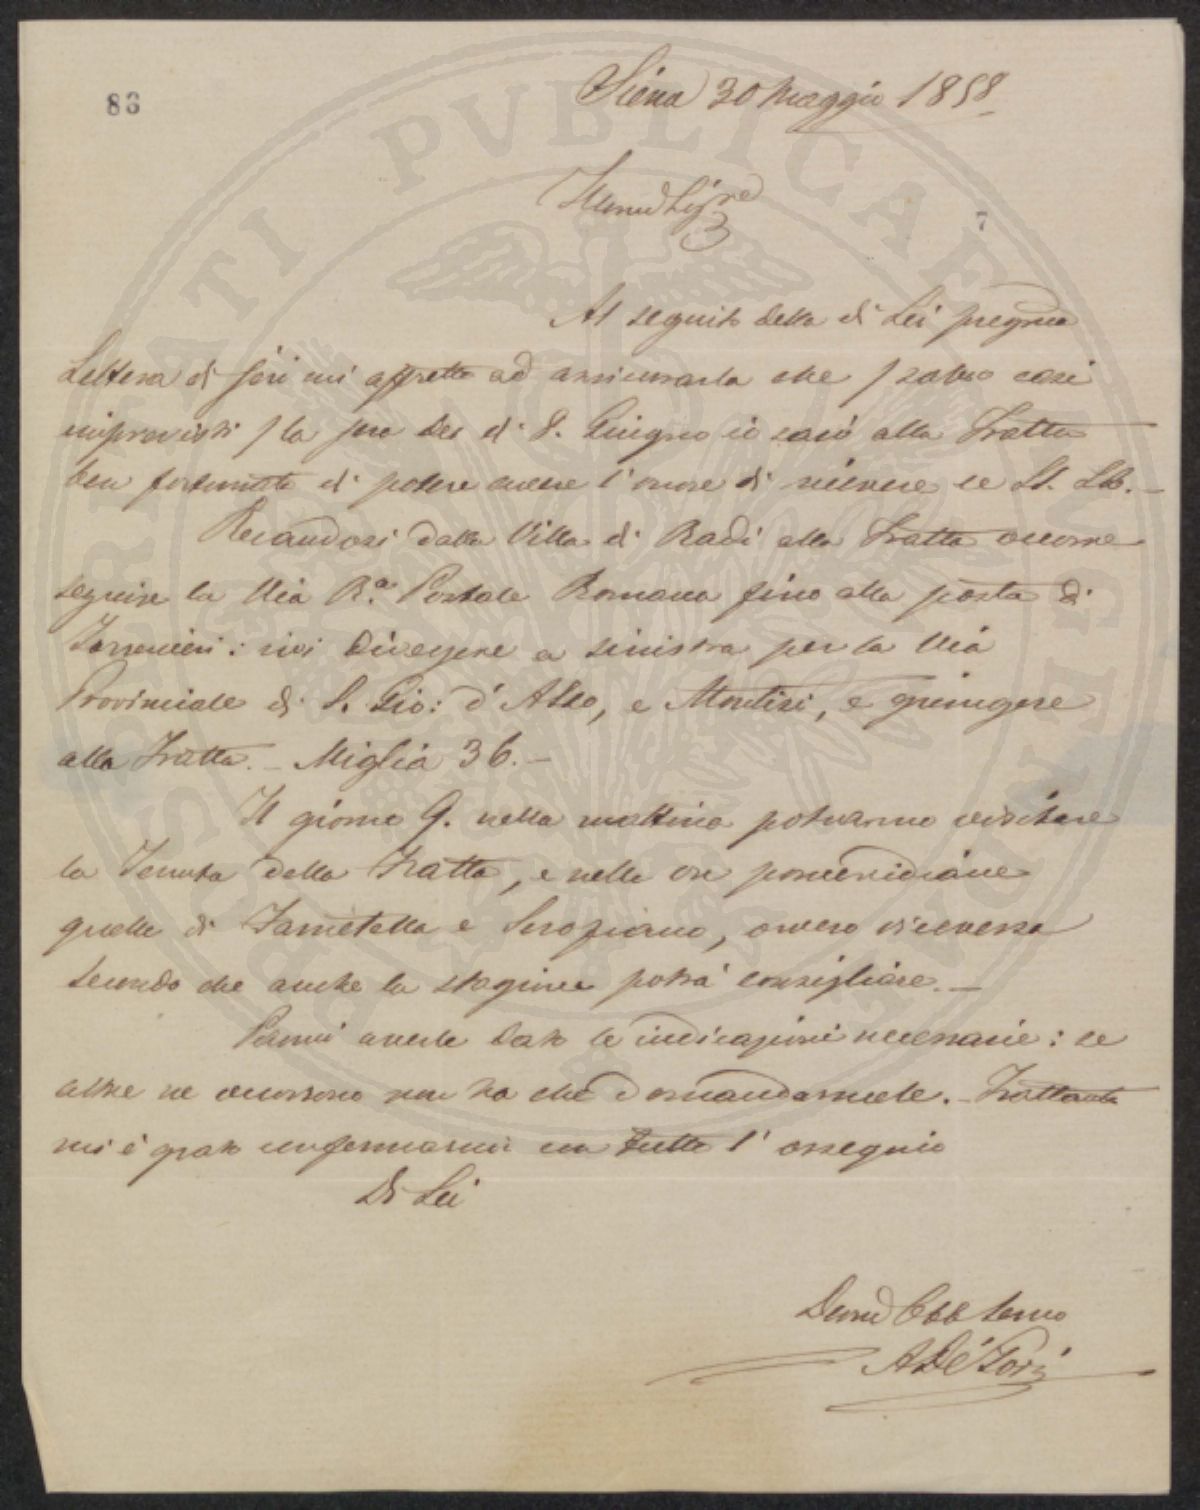 83
Siena 30 Maggio 1858
7
Al seguito della di Lei pregma
Lettera di jeri mi affretto ad assicurarla che / salvo casi
imprevisti / la sera del dì 8. Giugno io sarò alla Fratta
ben fortunato di potere avere l'onore di ricevere le LL.
Recandosi dalla Villa di Radi alla Fratta occorre
seguire la Via R.a Postale Romana fino alla posta di
Torrenieri: ivi divergere a sinistra per la Via
Provinciale di S. Gio: d'Asso, e Montisi, e giungere
alla Fratta. – Miglia 36. –
Il giorno 9. nella mattina potranno visitare
la Tenuta della Fratta, e nelle ore pomeridiane
quelle di e , ovvero viceversa
secondo che anche la stagione potrà consigliare. –
Parmi averle dato le indicazioni necessarie: se
altre ne occorrono non ha che domandarmele. – Frattanto
mi è grato confermarmi con tutto l'ossequio
Di Lei
Devmo Obb Servo
A De Gori